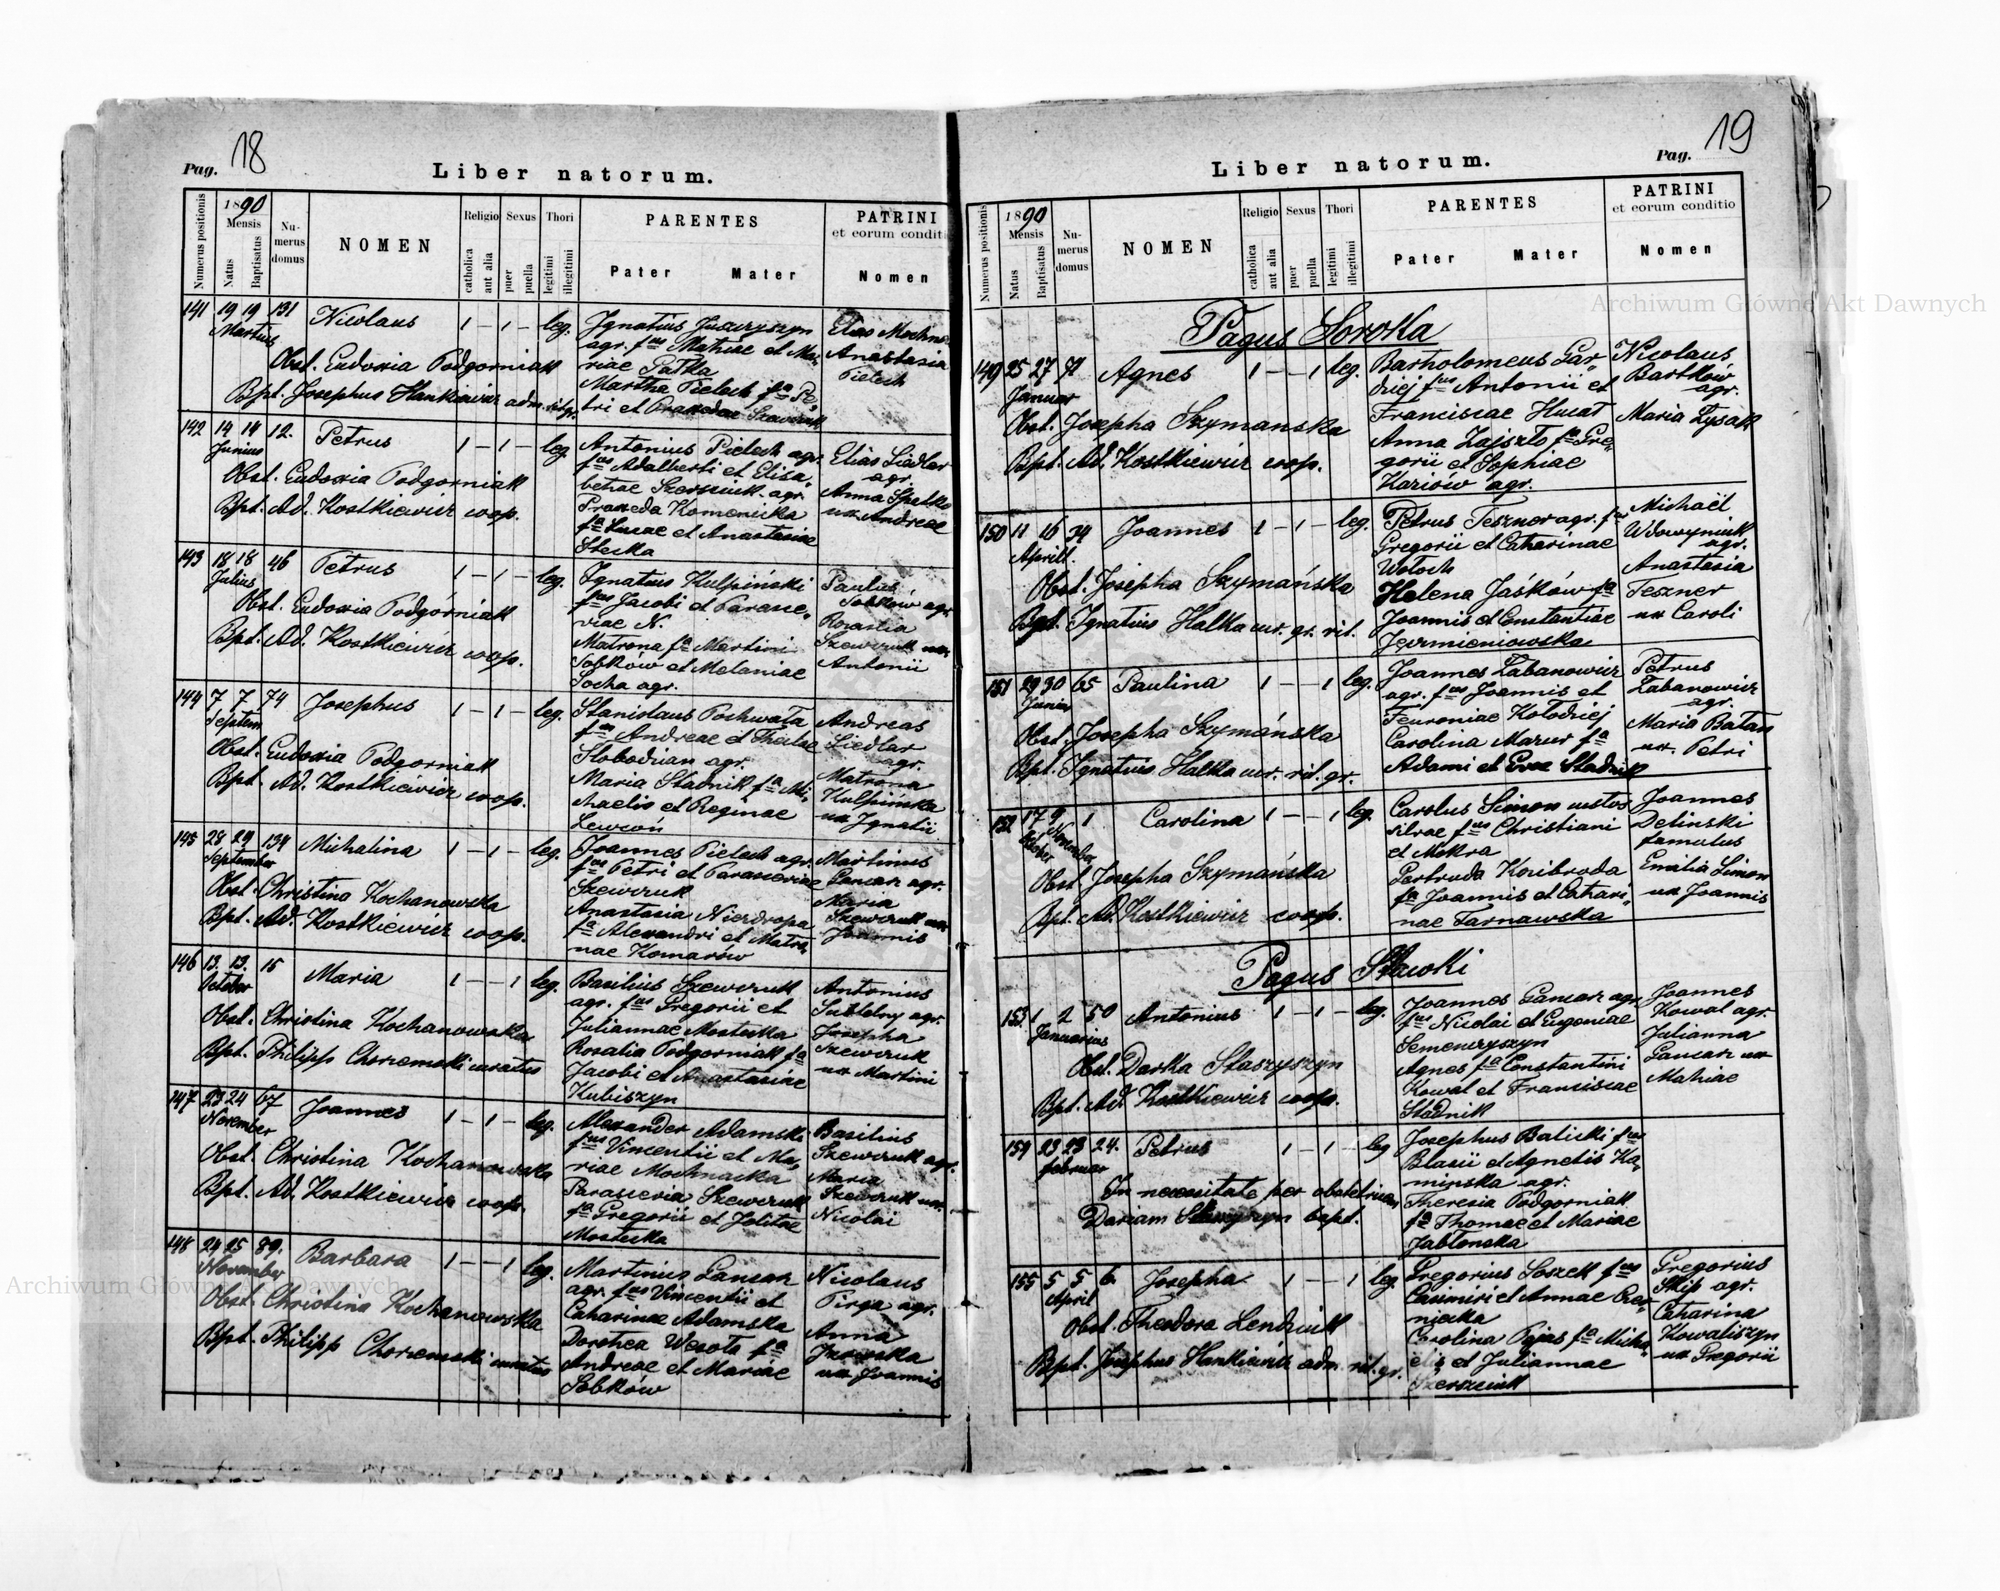 Pag. 18
Liber natorum.
Numerus positionis
1890
Mensis
Natus
Baptisatus
Nu-
merus
domus
NOMEN
Religio
catholica
aut alia
Sexus
puer
puella
Thori
legitimi
illegitimi
PARENTES
Pater
Mater
PATRINI
et eorum conditi
Nomen
141 19 19 131 Nicolaus 1 – 1 – leg.
Martius
Obst. Eudoxia Podgorniak
Bpt. Josephus Hankiewicz adm. rit. gr.
Ignatius Juszczyszyn
agr. fus Mathiae et Ma-
riae Patka
Martha Pielech fa Pe-
tri et Praxedae Szewczuk
Elias Mochna
Anastasia
Pielech
142 14 14 12. Petrus 1 – 1 – leg.
Junius
Obst. Eudoxia Podgorniak
Bpt. Ad. Kostkiewicz coop.
Antonius Pielech agr.
fus Adalberti et Elisa-
betae Szerszeniuk agr.
Praxeda Komenicka
fa Lucae et Anastasiae
Stecka
Elias Siedlar
agr.
Anna
ux Andreae
143 18 18 46 Petrus 1 – 1 – leg.
Julius
Obst. Eudoxia Podgórniak
Bpt. Ad. Kostkiewicz coop.
Ignatius Kulpiński
fus Jacobi et Parasce-
viae N.
Matrona fa Martini
Sobków et Melaniae
Socha agr.
Paulus
Sobków agr.
Rosalia
Szewczuk ux.
Antonii
144 7 7 74 Josephus 1 – 1 – leg.
Septem
Obst. Eudoxia Podgorniak
Bpt. Ad. Kostkiewicz coop.
Stanislaus Pochwała
fus Andreae et Theclae
Slobodzian agr.
Maria Stadnik fa Mi-
chaelis et Reginae
Lewcoń
Andreas
Siedlar
agr.
Matrona
Kulpińska
ux Ignatii
145 28 29 134 Michalina 1 – 1 – leg.
September
Obst. Christina Kochanowska
Bpt. Ad. Kostkiewicz coop.
Joannes Pielech agr.
fus Petri et Parasceviae
Szewczuk
Anastasia Nierdropa
fa Alexandri et Matro-
nae Komarów
Martinus
Gancar agr.
Maria
Szewczuk ux.
Joannis
146 13. 13. 15 Maria 1 – – 1 leg.
October
Obst. Christina Kochanowska
Bpt. Philipp Choremski curatus
Basilius Szewczuk
agr. fus Gregorii et
Juliannae Mostecka
Rosalia Podgorniak fa
Jacobi et Anastasiae
Kubiszyn
Antonius
Subtelny agr.
Josepha
Szewczuk
ux Martini
147 23 24 67 Joannes 1 – 1 – leg.
November
Obst. Christina Kochanowska
Bpt. Ad. Kostkiewicz coop.
Alexander Adamski
fus Vincentii et Ma-
riae Mochnacka
Parascevia Szewczuk
fa Gregorii et Jolitae
Mostecka
Basilius
Szewczuk agr.
Maria
Szewczuk ux.
Nicolai
148 24 25 89. Barbara 1 – – 1 leg.
November
Obst. Christina Kochanowska
Bpt. Philipp Choremski curatus
Martinus Gancar
agr. fus Vincentii et
Catharinae Adamska
Dorothea Wesoła fa
Andreae et Mariae
Sobków
Nicolaus
Pirga agr.
Anna
ux Joannis
Pag. 19
Liber natorum.
Numerus positionis
1890
Mensis
Natus
Baptisatus
Nu-
merus
domus
NOMEN
Religio
catholica
aut alia
Sexus
puer
puella
Thori
legitimi
illegitimi
PARENTES
Pater
Mater
PATRINI
et eorum conditio
Nomen
Pagus Soroka
149 25 27 71 Agnes 1 – – 1 leg.
Januar
Obst. Josepha Szymanska
Bpt. Ad. Kostkiewicz coop.
Bartholomeus Gar-
dziej fus Antonii et
Franciscae Husat
Anna Zajszło fa Gre-
gorii et Sophiae
Kariów agr.
Nicolaus
Bartków
agr.
Maria Lysak
150 11 16 34 Joannes 1 – 1 – leg.
Aprill
Obst. Josepha Szymańska
Bpt. Ignatius Halka cur. gr. rit.
Petrus Teszner agr. fus
Gregorii et Catharinae
Wołoch
Helena Jaśków fa
Joannis et Constantiae
Jermieniowska
Michaël
Wdowyniuk
agr.
Anastasia
Teszner
ux Caroli
151 29 30 65 Paulina 1 – – 1 leg.
Junius
Obst. Josepha Szymańska
Bpt. Ignatius Halka cur. rit. gr.
Joannes Zabanowicz
agr. fus Joannis et
Feuroniae Kołodziej
Carolina Mazur fa
Adami et Evae Stadnik
Petrus
Zabanowicz
agr.
Maria Batan
ux. Petri
152 17 9 1 Carolina 1 – – 1 leg.
October November
Obst. Josepha Szymańska
Bpt. Ad. Kostkiewicz coop.
Carolus Simon custos
silvae fus Christiani
et Mokra
Gertruda Koribroda
fa Joannis et Cathari-
nae Tarnawska
Joannes
Delinski
famulus
Emilia Simon
ux Joannis
Pagus Stawki
153 1 2 50 Antonius 1 – 1 – leg.
Januarius
Obst. Darka Staszyszyn
Bpt. Ad. Kostkiewicz coop.
Joannes Gancar agr.
fus Nicolai et Eugeniae
Semenczyszyn
Agnes fa Constantini
Kowal et Franciscae
Stadnik
Joannes
Kowal agr.
Julianna
Gancar ux
Mathiae
154 23 23 24. Petrus 1 – 1 – leg
Februar
In necessitate per obstetricem
Dariam bapt.
Josephus Balicki fus
Blasii et Agnetis Ka-
minska agr.
Theresia Podgorniak
fa Thomae et Mariae
Jabłonska
155 5 5 6. Josepha 1 – – 1 leg
April
Obst. Theodora Lendziuk
Bpt. Josephus Hankiewicz adm. rit. gr.
Gregorius Soszek fus
Casimiri et Annae Czer-
niecka
Carolina Pajas fa Micha-
elis et Juliannae
Szerszeniuk
Gregorius
Skip agr.
Catharina
Kowaliszyn
ux Gregorii
Archiwum Główne Akt Dawnych
Archiwum Główne Akt Dawnych